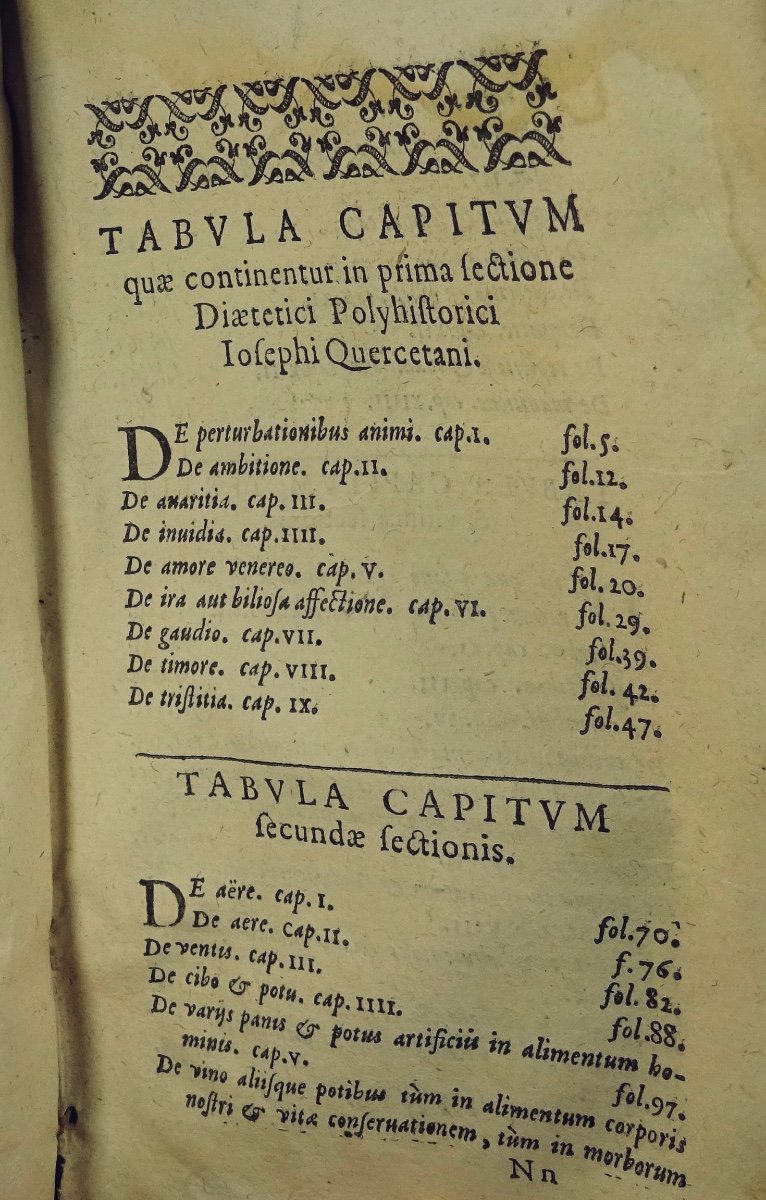 TABVLA CAPITVM
quæ continentur in prima ſectione
Diætetici Polyhiſtorici
Ioſephi Quercetani.
DE perturbationibus animi. cap.I. fol.5.
De ambitione. cap.II. fol.12.
De auaritia. cap.III. fol.14.
De inuidia. cap.IIII. fol.17.
De amore venereo. cap.V. fol.20.
De ira aut bilioſa affectione. cap.VI. fol.29.
De gaudio. cap.VII. fol.39.
De timore. cap.VIII. fol.42.
De triſtitia. cap.IX. fol.47.
TABVLA CAPITVM
ſecundæ ſectionis.
DE aëre. cap.I. fol.70.
De aere. cap.II. f.76.
De ventis. cap.III. fol.82.
De cibo & potu. cap.IIII. fol.88.
De varijs panis & potus artificiis in alimentum ho-
minis. cap.V. fol.97.
De vino aliiſque potibus tùm in alimentum corporis
noſtri & vitæ conſeruationem, tùm in morborum
Nn